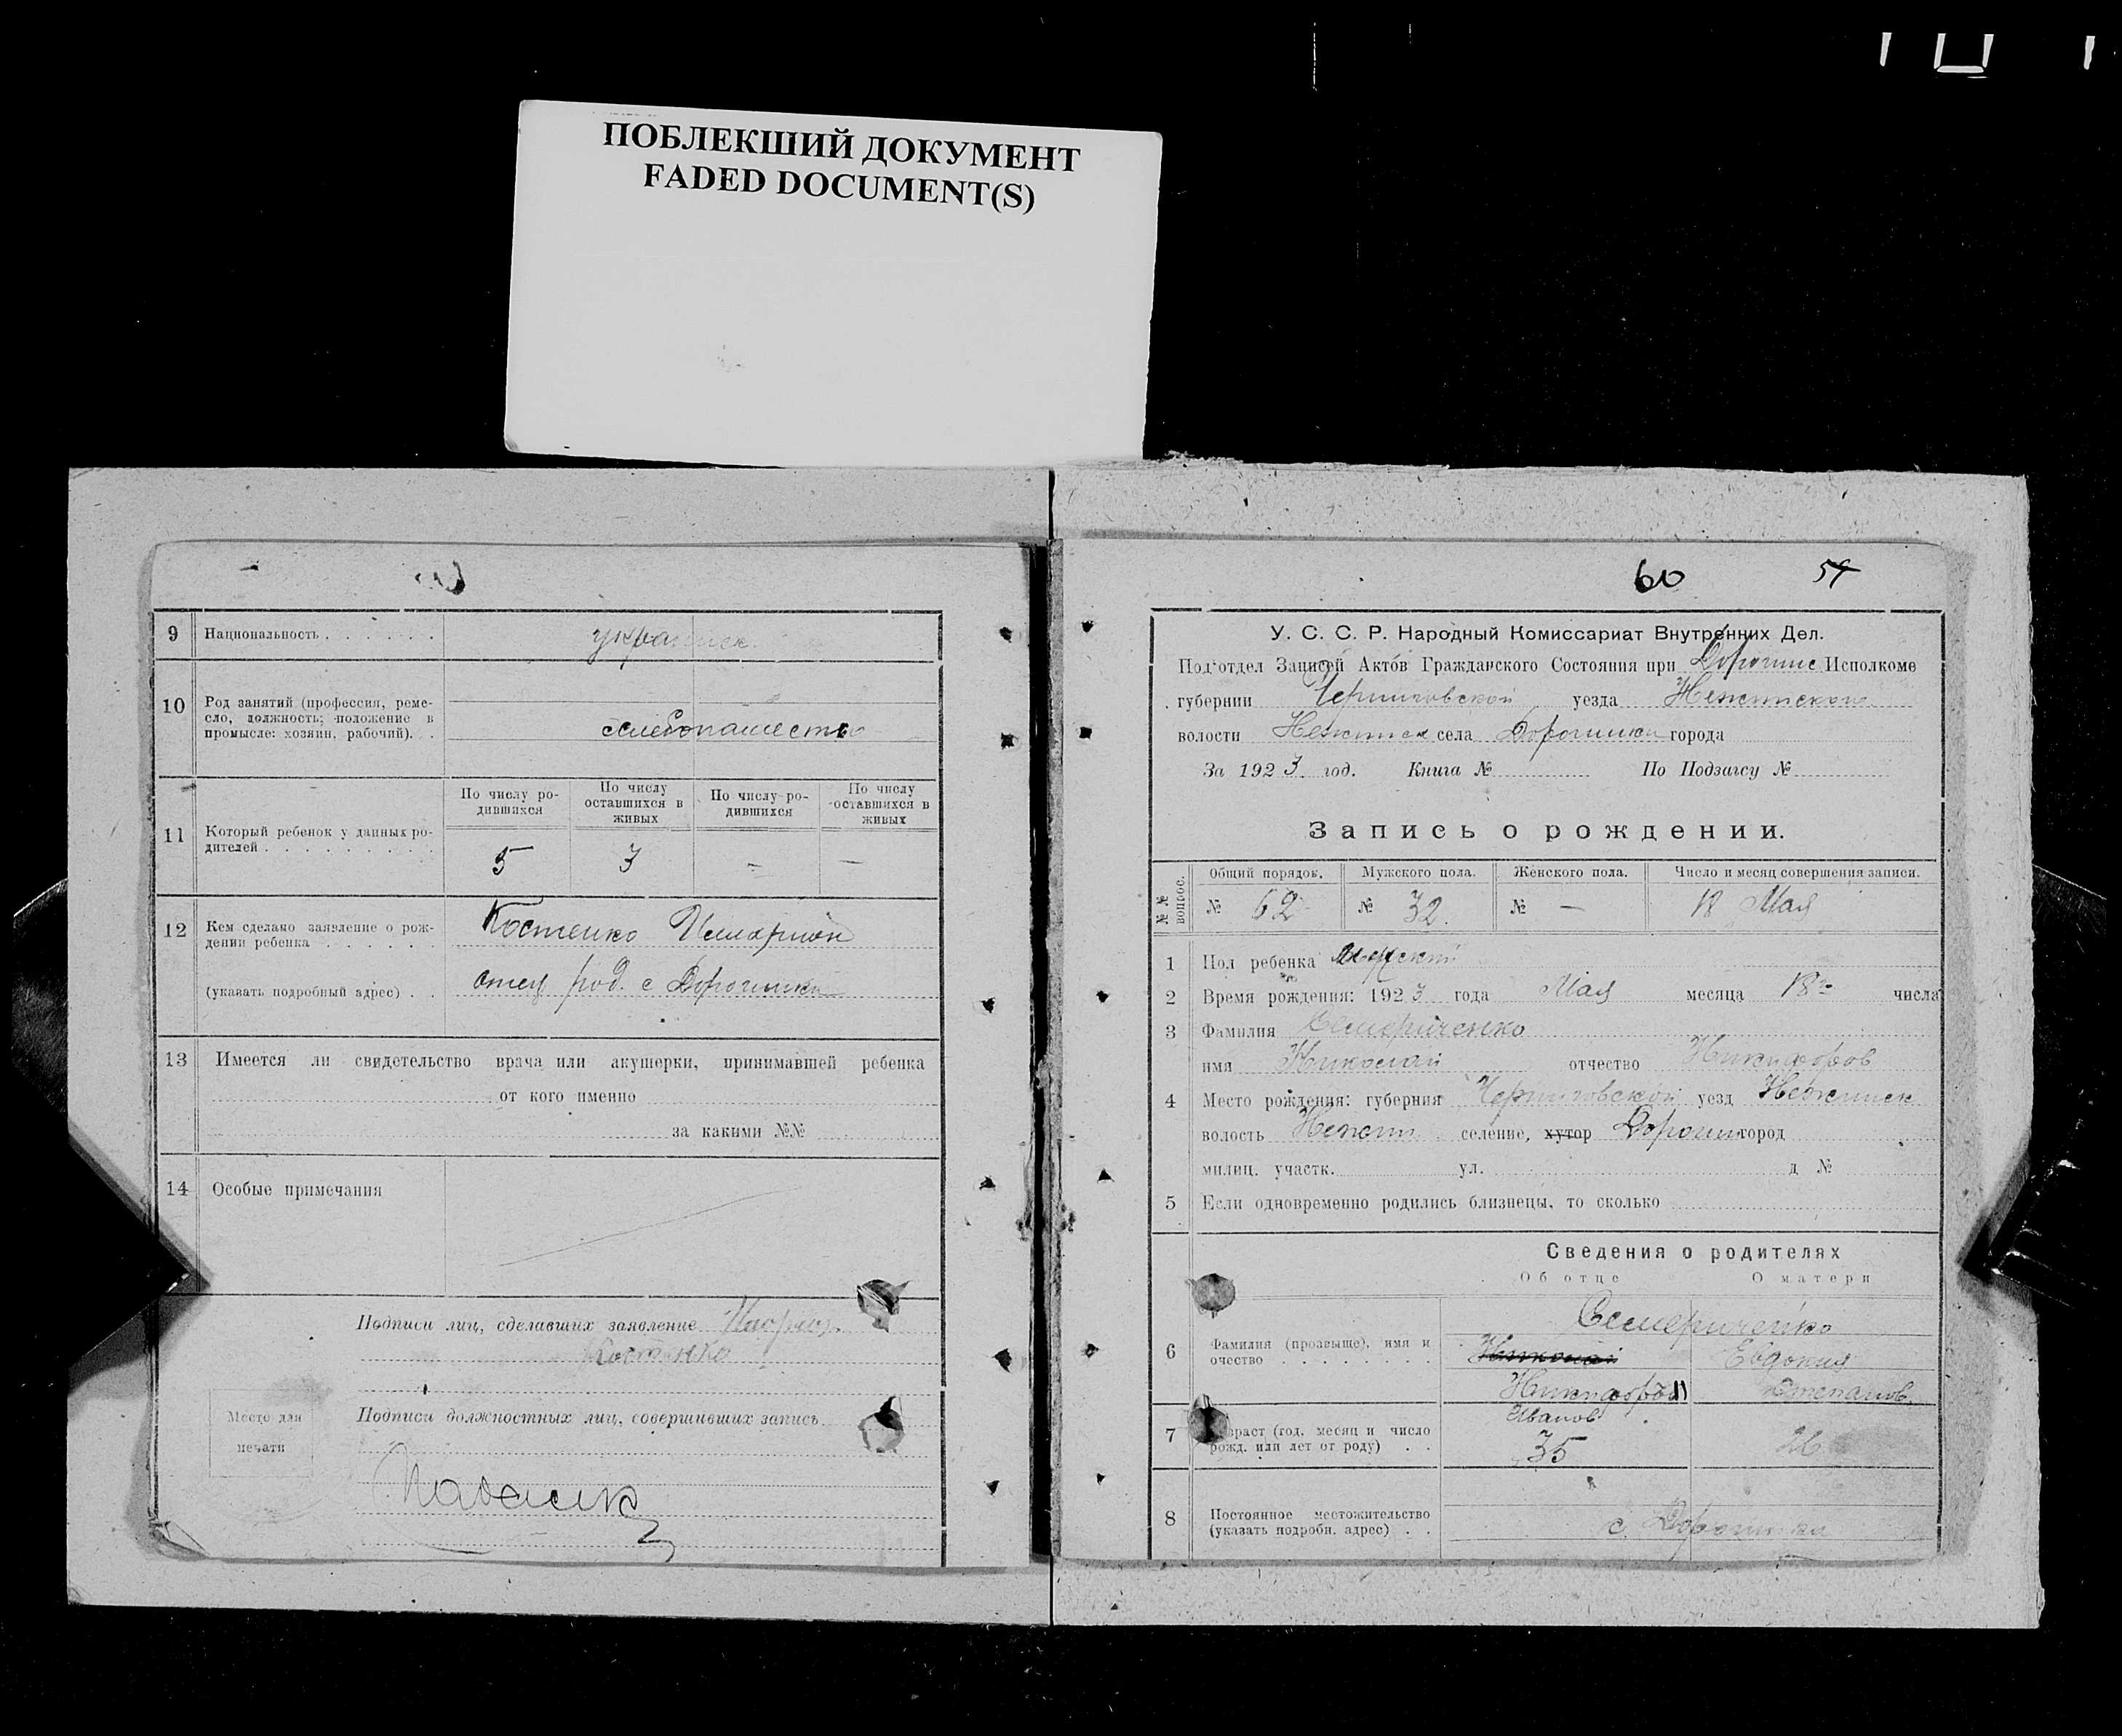 ПОБЛЕКШИЙ ДОКУМЕНТ
FADED DOCUMENT(S)
9 Национальность украинск.
10 Род занятий (профессия, реме-
сло, должность; положение в
промысле: хозяин, рабочий).
хлебопашеств
11 Который ребенок у данных ро-
дителей
По числу ро-
дившихся
По числу
оставшихся в
живых
По числу ро-
дившихся
По числу
оставшихся в
живых
5 3 - —
12 Кем сделано заявление о рож-
дении ребенка
Костенко
(указать подробный адрес)
отец род. с Дорогинки
13 Имеется ли свидетельство врача или акушерки, принимавшей ребенка
от кого именно
за какими №№
14 Особые примечания
Подписи лиц, сделавших заявление
Костенко
Подписи должностных лиц, совершивших запись
Место для
печати
60 54
У. С. С. Р. Народный Комиссариат Внутренних Дел.
Подотдел Записей Актов Гражданского Состояния при Исполкоме
губернии Черниговской уезда Нежинского
волости Нежинск села Дорогинки города
За 1923 год. Книга № По Подзагсу №
Запись о рождении.
№№ вопрос.
Общий порядок. Мужского пола. Женского пола. Число и месяц совершения записи.
№ 62 № 32. № — 18 Мая
1 Пол ребенка мужский
2 Время рождения: 1923 года Мая месяца 18 числа
3 Фамилия Семериченко
имя Николай отчество Никифоров
4 Место рождения: губерния Черниговской уезд Нежинск
волость Нежин. селение, хутор город
милиц. участк. ул. д №
5 Если одновременно родились близнецы, то сколько
Сведения о родителях
Об отце О матери
6 Фамилия (прозвыще), имя и
очество
Семериченко
Николай Евдокия
Никифоров Степанов.
Иванов
7 Возраст (год, месяц и число
рожд. или лет от роду)
35 26
8 Постоянное местожительство
(указать подробн. адрес)
с. Дорогинки